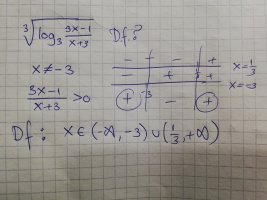 ∛(log₃ (3x-1)/(x+3)) Df.?
x≠-3
(3x-1)/(x+3) >0
- - +
- + +
+ -3 - +
x=1/3
x=-3
Df: x∈(-∞,-3)∪(1/3,+∞)